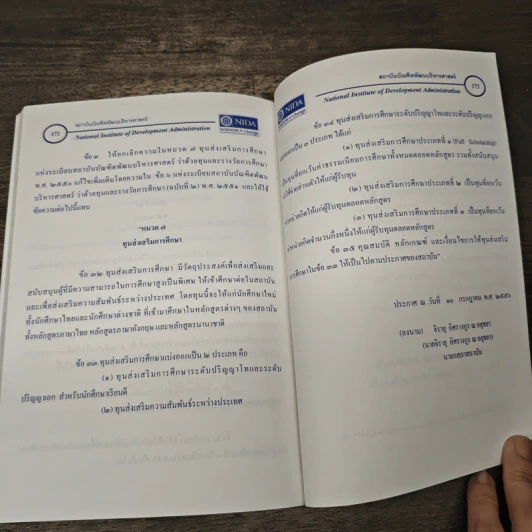 สถาบันบัณฑิตพัฒนบริหารศาสตร์
172
National Institute of Development Administration
NIDA
WISDOM for Change
ข้อ ๓ ให้ยกเลิกความในหมวด ๗ ทุนส่งเสริมการศึกษา
แห่งระเบียบสถาบันบัณฑิตพัฒนบริหารศาสตร์ ว่าด้วยทุนและรางวัลการศึกษา
พ.ศ. ๒๕๕๐ แก้ไขเพิ่มเติมโดยความใน ข้อ ๖ แห่งระเบียบสถาบันบัณฑิตพัฒน
บริหารศาสตร์ ว่าด้วยทุนและรางวัลการศึกษา (ฉบับที่ ๒) พ.ศ. ๒๕๕๑ และให้ใช้
ข้อความต่อไปนี้แทน
"หมวด ๗
ทุนส่งเสริมการศึกษา
ข้อ ๓๒ ทุนส่งเสริมการศึกษา มีวัตถุประสงค์เพื่อส่งเสริมและ
สนับสนุนผู้ที่มีความสามารถในการศึกษาสูงเป็นพิเศษ ให้เข้าศึกษาต่อในสถาบัน
และเพื่อส่งเสริมความสัมพันธ์ระหว่างประเทศ โดยทุนนี้จะให้แก่นักศึกษาใหม่
ทั้งนักศึกษาไทยและนักศึกษาต่างชาติ ที่เข้ามาศึกษาในหลักสูตรต่างๆ ของสถาบัน
ทั้งหลักสูตรภาษาไทย หลักสูตรภาษาอังกฤษ และหลักสูตรนานาชาติ
ข้อ ๓๓ ทุนส่งเสริมการศึกษาแบ่งออกเป็น ๒ ประเภท คือ
(๑) ทุนส่งเสริมการศึกษาระดับปริญญาโทและระดับ
ปริญญาเอก สำหรับนักศึกษาเรียนดี
(๒) ทุนส่งเสริมความสัมพันธ์ระหว่างประเทศ
สถาบันบัณฑิตพัฒนบริหารศาสตร์
173
NIDA
National Institute of Development Administration
ข้อ ๓๔ ทุนส่งเสริมการศึกษาระดับปริญญาโทและระดับปริญญาเอก
เป็น ๓ ประเภท ได้แก่
(๑) ทุนส่งเสริมการศึกษาประเภทที่ ๑ (Full Scholarship)
เป็นทุนที่ยกเว้นค่าธรรมเนียมการศึกษาทั้งหมดตลอดหลักสูตร รวมทั้งสนับสนุน
ให้แก่ผู้รับทุน
(๒) ทุนส่งเสริมการศึกษาประเภทที่ ๒ เป็นทุนที่ยกเว้น
หน่วยกิตให้แก่ผู้รับทุนตลอดหลักสูตร
(๓) ทุนส่งเสริมการศึกษาประเภทที่ ๓ เป็นทุนที่ยกเว้น
หน่วยกิตจำนวนกึ่งหนึ่งให้แก่ผู้รับทุนตลอดหลักสูตร
ข้อ ๓๕ คุณสมบัติ หลักเกณฑ์ และเงื่อนไขการให้ทุนส่งเสริม
การศึกษาในข้อ ๓๓ ให้เป็นไปตามประกาศของสถาบัน"
ประกาศ ณ วันที่ ๑๐ กรกฎาคม พ.ศ. ๒๕๕๖
(ลงนาม) จิรายุ อิศรางกูร ณ อยุธยา
(นายจิรายุ อิศรางกูร ณ อยุธยา)
นายกสภาสถาบัน